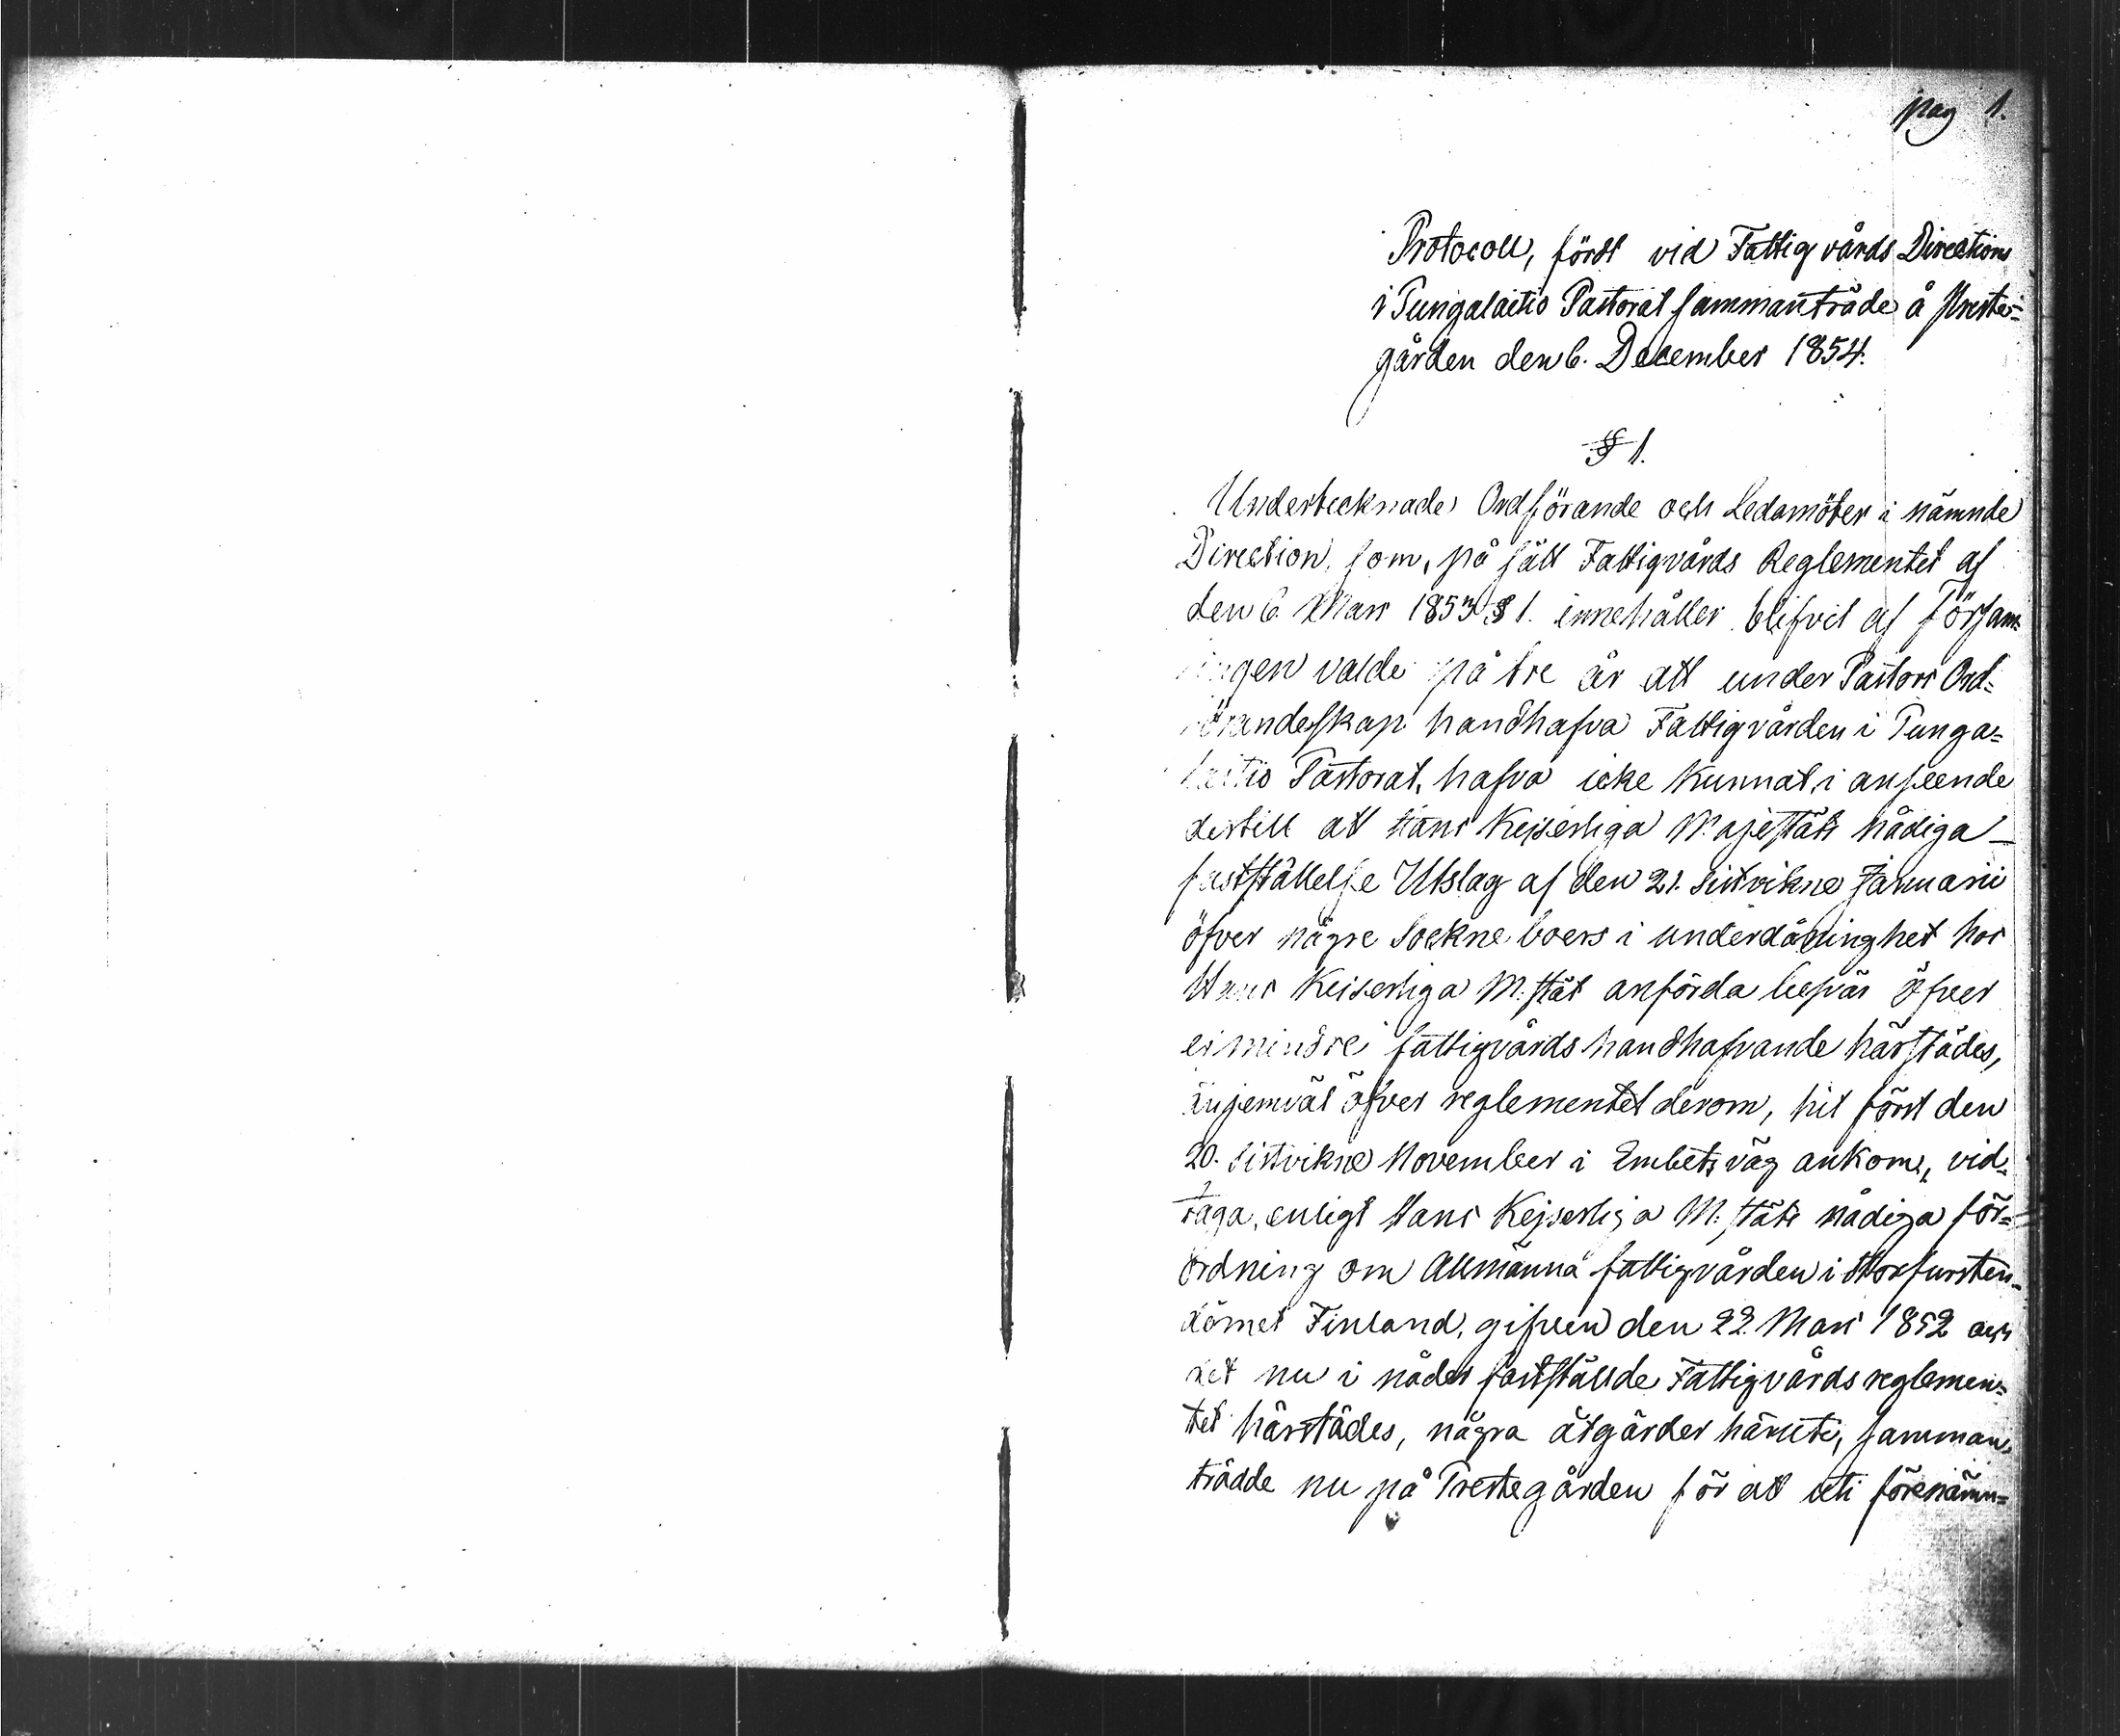 pag 1.
Protocoll, fördt vid Fattigvårds Directions
i Pungalaitio Pastorat sammanträde å Preste=
gården den 6. December 1854.
§ 1.
Undertecknade Ordförande och Ledamöter i nämnde
Direction, som, på sätt Fattigvårds Reglementet af
den 6. Mars 1853 § 1. innehåller blifvit af Försam=
ingen valde på tre år att under Pastors Ord=
örandeskap handhafva Fattigvården i Punga=
laitio Pastorat, hafva icke kunnat, i anseende
dertill att Hans Kejserliga Majestäts Nådiga
fastställelse Utslag af den 21. sistvikne Januarii
öfver någre Sockneboers i underdåninghet hos
Hans Keiserliga M:stät anförda besvär öfver
ei mindre fattigvårds handhafvande härstädes,
änjemväl öfver reglementet derom, hit först den
20. sistvikne November i Embets väg ankom, vid=
taga, enligt Hans Kejserliga M:stäts nådiga för=
ordning om Allmänna fattigvården i Storfursten=
dömet Finland, gifven den 22. Mars 1852 och
det nu i nåder fastställde Fattigvårds reglemen=
tet härstädes, några åtgärder häruti, samman=
trädde nu på Prestegården för att uti förenämn=